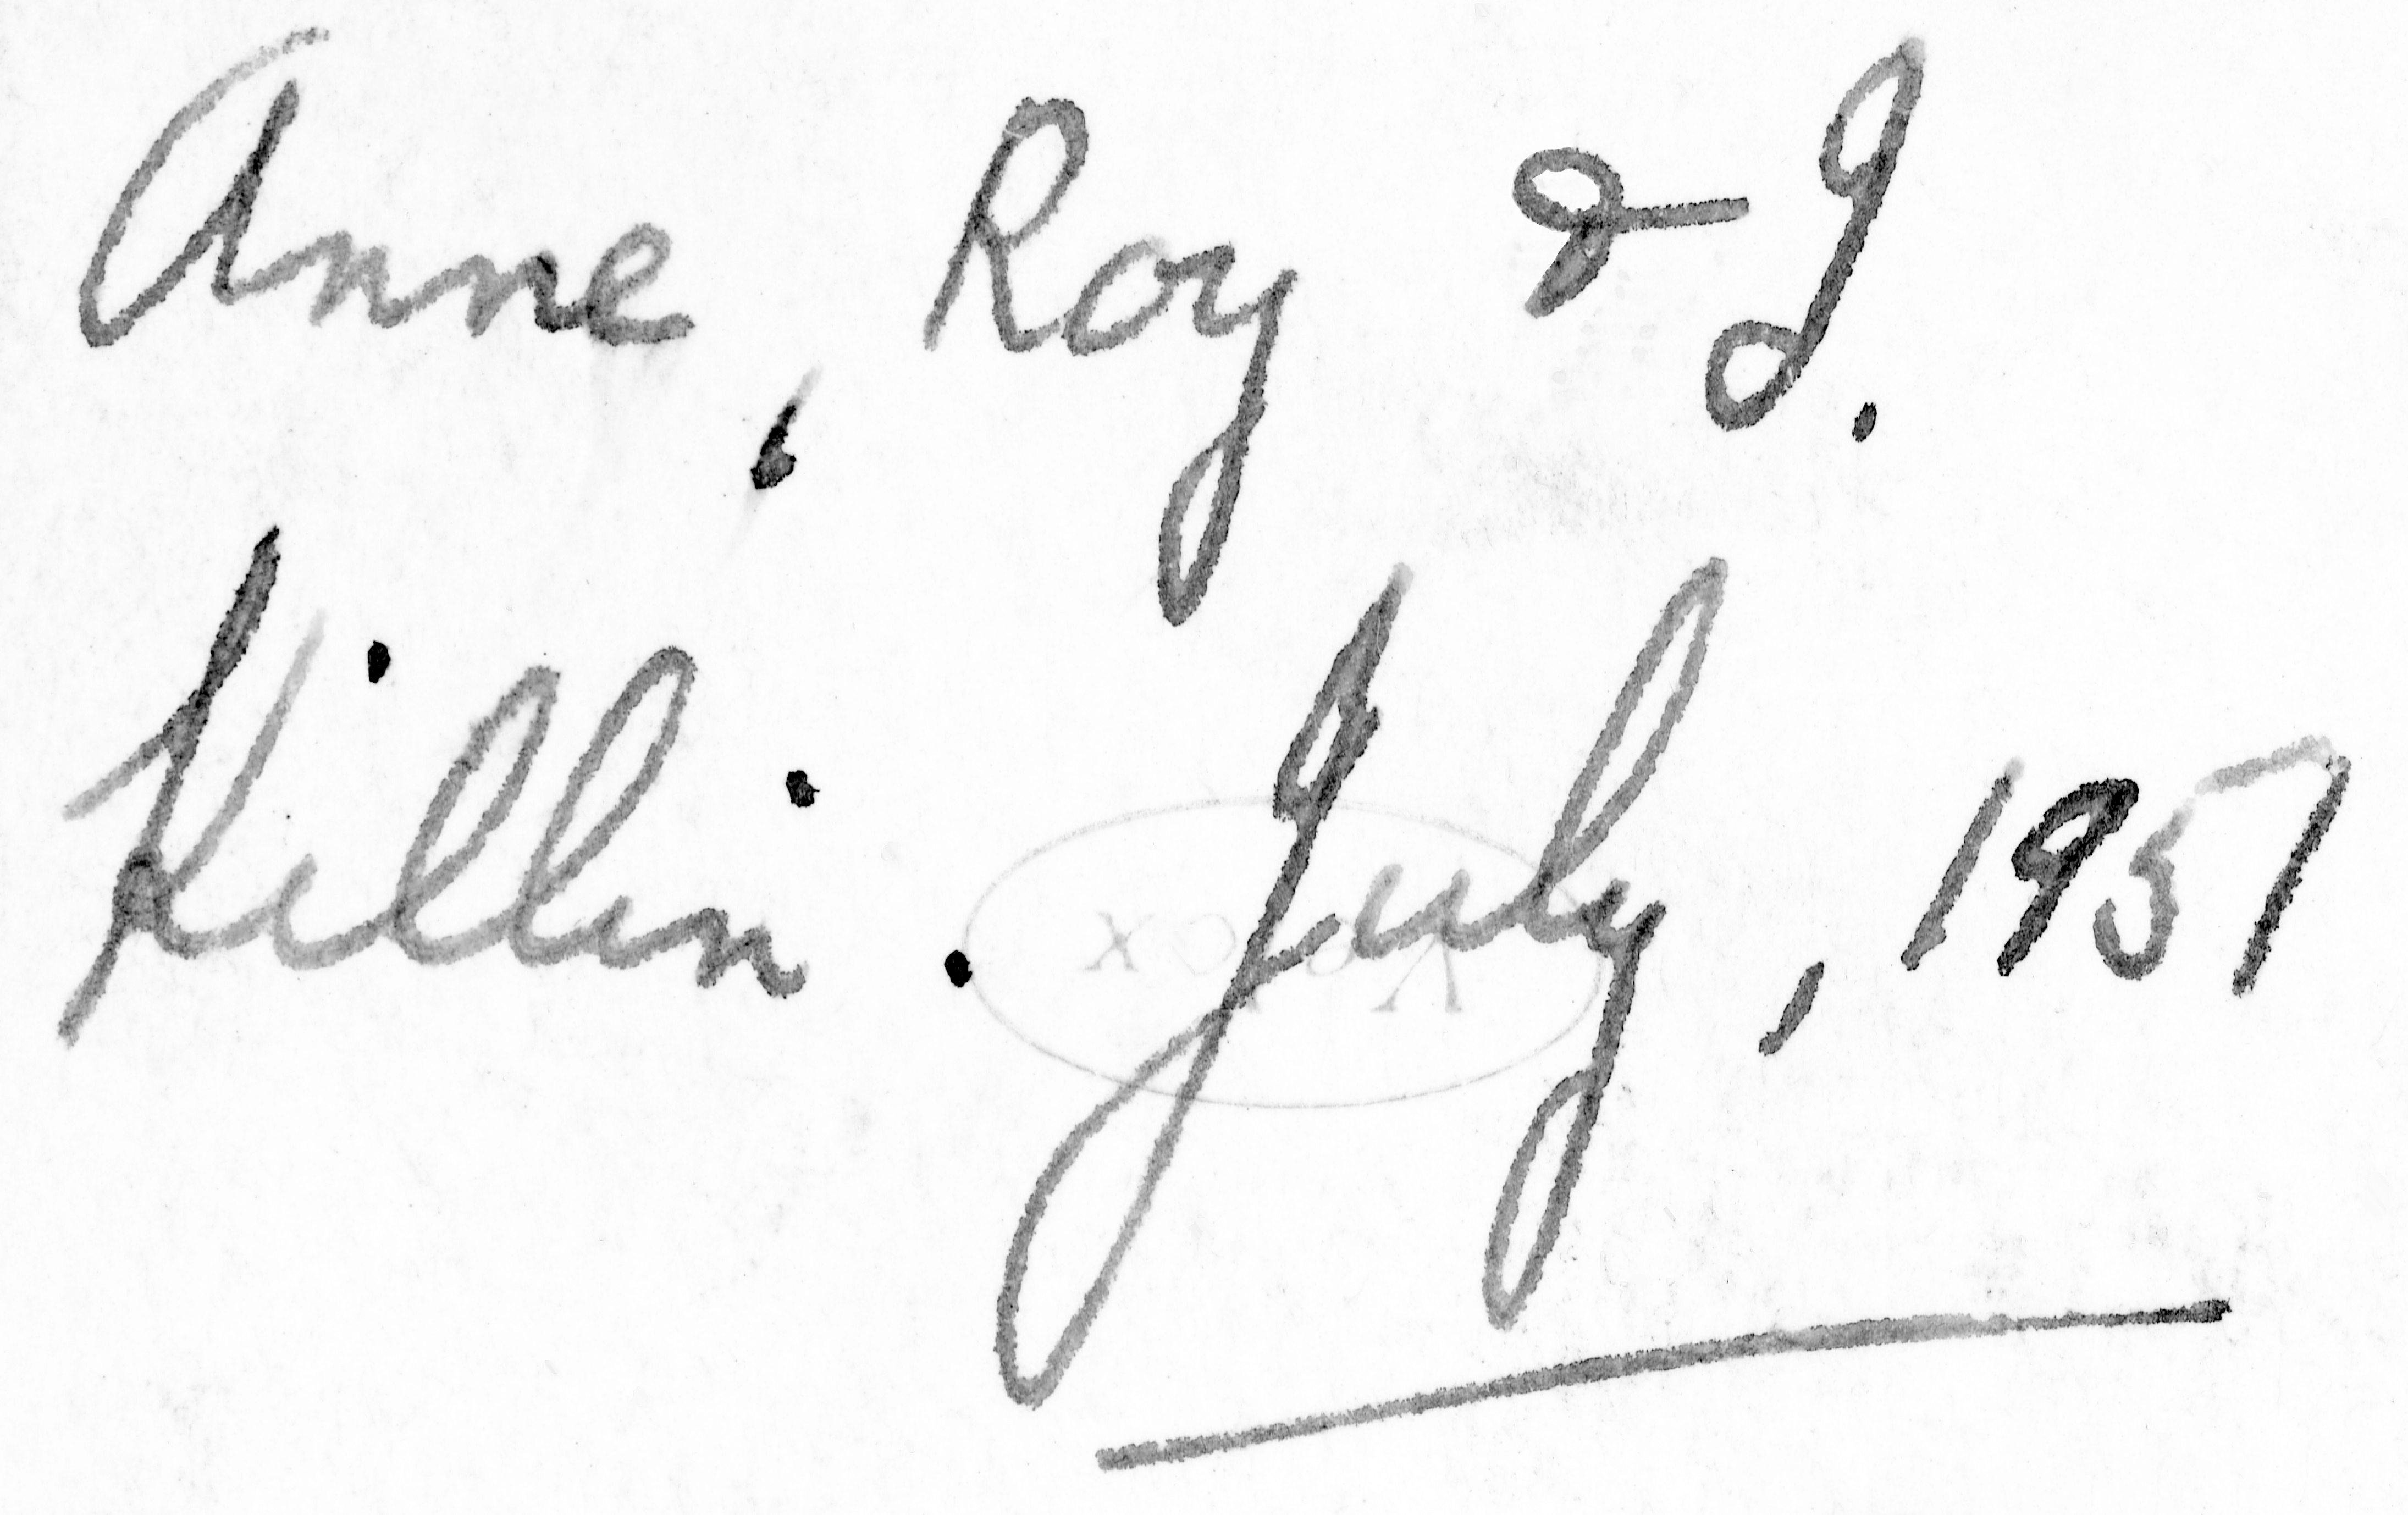 Anne, Roy & I.
Killin. July, 1951